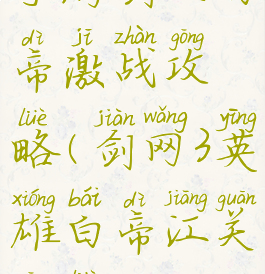 dì jī zhàn gōng
帝激战攻
lüè jiàn wǎng yīng
略(剑网3英
xióng bái dì jiāng guān
雄白帝江关